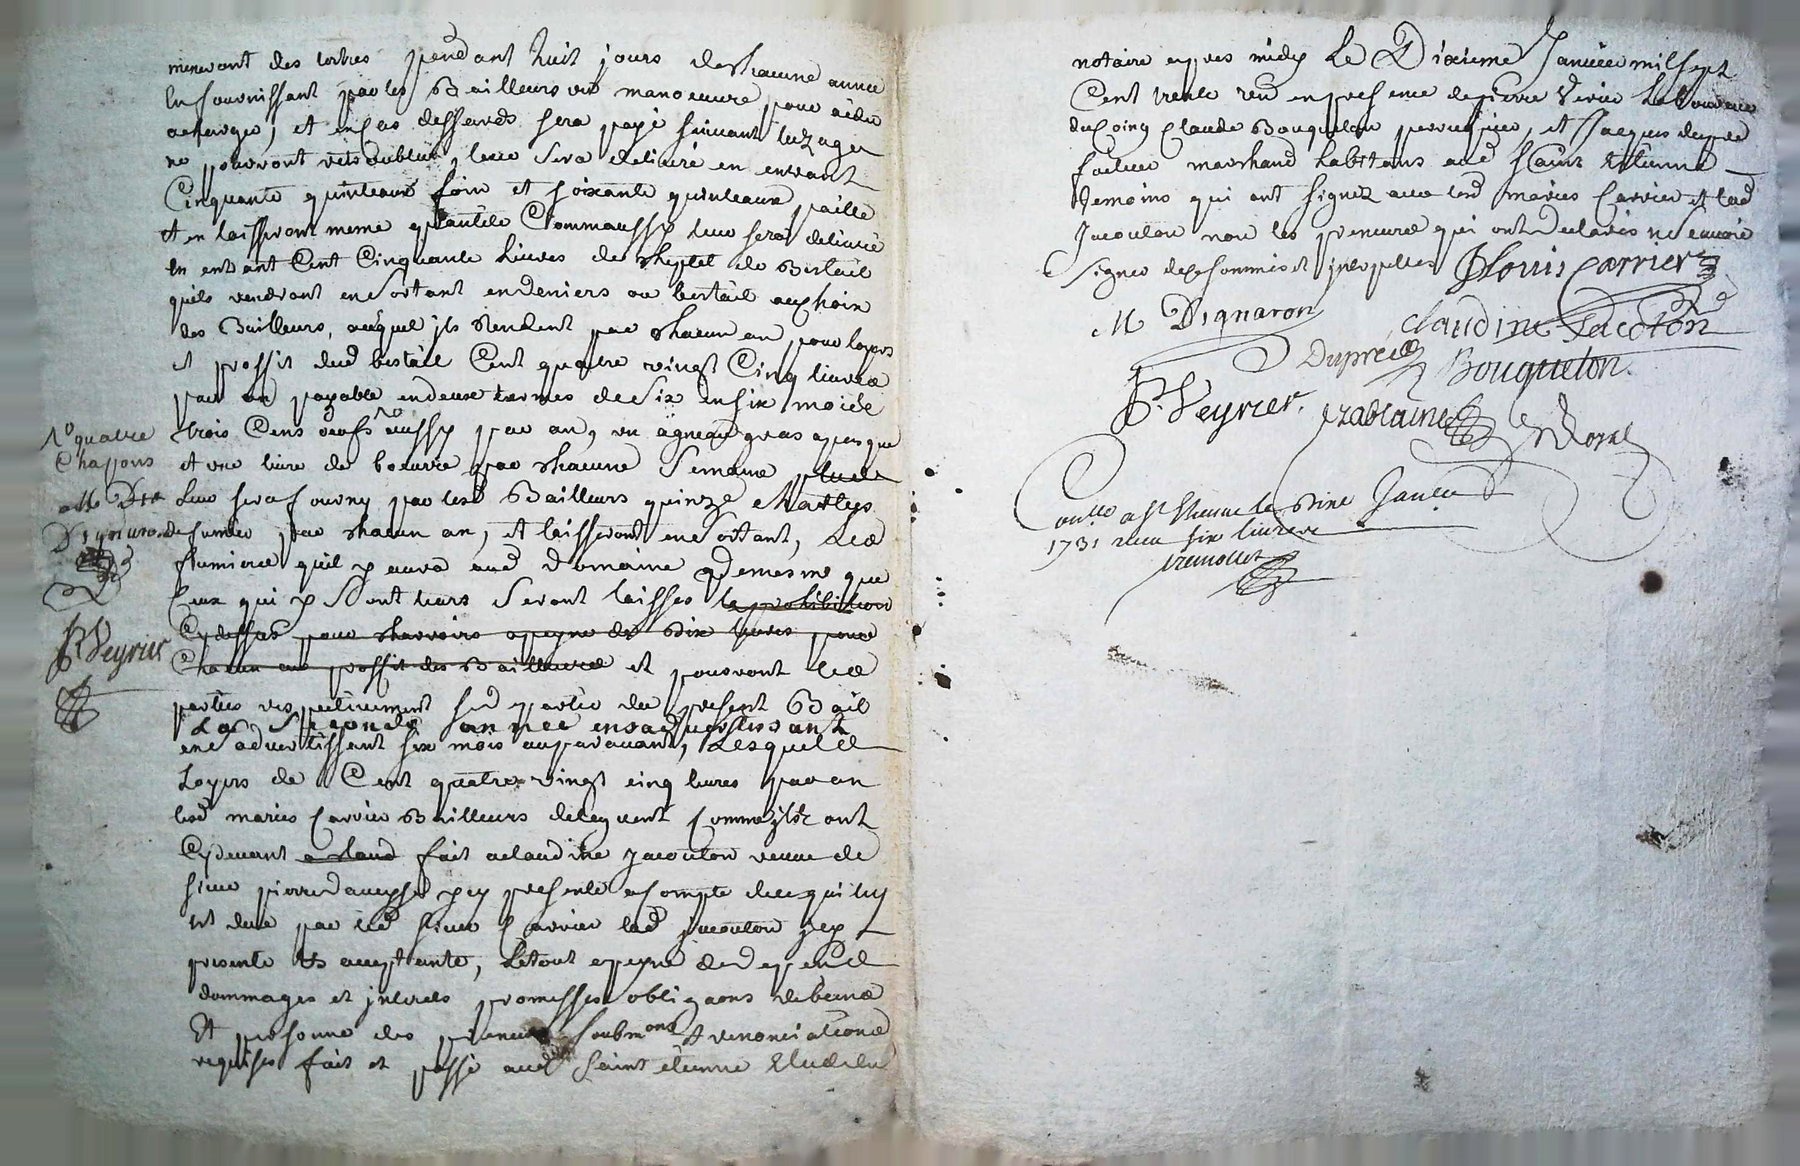 menant des terres pendant huit jours de chacune année
en fournissant par les Bailleurs un manoeuvre pour aider
a charger, et en cas sera payé suivant
ne pourront leur sera delivré en entrant
Cinquante quinteaux foin et soixante quinteaux paille
et en laisseront meme quantité Comm aussy leur sera delivré
en entrant Cent Cinquante Livres de cheptel de Bestail
quils rendront en sortant en deniers ou bestail au choix
des Bailleurs, auquel ils rendent par chacun an pour loyers
et proffit dud bestail Cent quatre vingt Cinq livres
par an payable en deux termes de six en six mois
trois Cens oeufs aussy par an, un agneau gras a pasque
et une livre de beurre par chacune Semaine plus
Leur sera fourny par lesd Bailleurs quinze
de fumier par chacun an, et laisseront en sortant, Les
fumiers quil y aura aud Domaine de mesme que
Ceux qui y sont leurs seront laissés la prohibition
Cydessus pour charrois a peyne de Dix livres pour
Chacun au proffit des Bailleurs et pourront les
parties respectivement du present Bail
La Segonde annee ensadvertissant
en s advertissant six mois auparavant, Lesquels
Loyers de Cent quatre vingt cinq livres par an
lesd mariés Carrier Bailleurs deleguent comme ils ont
Cydevant fait a claudine jacouton veuve de
sieur pierre icy presente a compte de ce qui luy
est deu par led sieur Carrier lad jacouton icy
presente et acceptante, Le tout a peyne de despens
dommages et interets promesses obliga͠ons de biens
Et personne des preneurs soubm͠ons et renonciations
requises fait et passé aud Saint etienne Etude du
1º quatre
Chappons
M Dignaron
P. Veyrier
notaire apres midy Le Dixieme Janvier mil sept
Cent trente un en presence de pierre Verier Laboureur
Claude Bouqueton perruquier, et Jacques dupré
facteur marchand habitans aud Saint Etienne
temoins qui ont signez avec lesd mariés Carrier et lad
Jacouton non les preneurs qui ont declarés ne scavoir
signer de ce sommés et interpellés JLouis Carrier
M Dignaron
claudine Jacoton
Dupré
Bouqueton.
P. Veyrier.
Con.llé a St Etienne le Dixe Janvier
1731 recu six livres